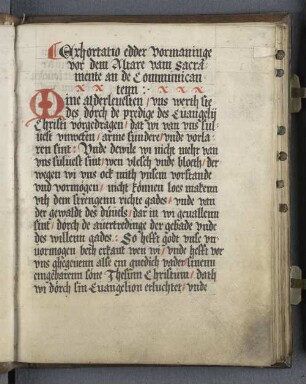 Exhortatio edder vormaninge
vor dem Altare vam Sacra
mente an de Communican
ten: · x x x
x x
Mine alderleuesten / vns werth hir
des dorch de predige des Euangelij
Christi vorgedragen / dat wi van vns sul
uest vorweten / arme sunder / vnde vorla
ren sint: Vnde dewile wi nicht mehr van
vns suluest sint / wen vlesch vnde bloeth / der
wegen wi vns ock mith vnsem vorstande
vnd vormogen / nicht können los maken
vth dem strengenn richte gades / vnde van
der gewalt des düuels / dar in wi geuallenn
sint / dorch de auertredinge der gebade vnde
des willenn gades: So hefft godt vnse vn
uormogen beth erkant wen wi / vnde hefft vor
vns ghegeuenn alse ein gnedich vader sinenn
eingebarenn sone Jhesum Christum / dath
wi dorch sin Euangelion erluchtet / vnde